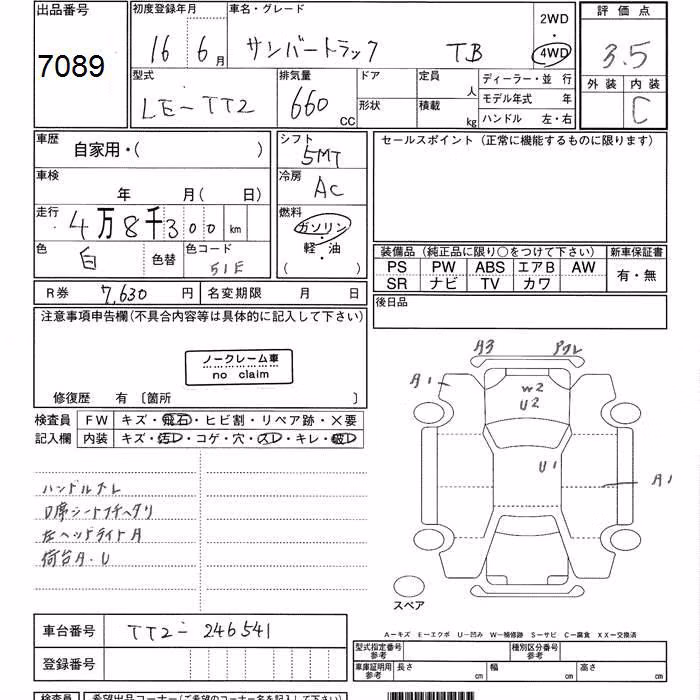 出品番号
7089
初度登録年月
16 6月
車名・グレード
サンバートラック TB
2WD
・
4WD
評価点
3.5
外装 内装
C
型式
LE-TT2
排気量
660 CC
ドア
形状
定員 人
積載 kg
ディーラー・並 行
モデル年式 年
ハンドル 左・右
車歴
自家用・( )
車検
年 月( 日)
走行
4万8千300 km
色
白
色替
色コード
51E
シフト
5MT
冷房
AC
燃料
ガソリン
・
軽・油
( )
セールスポイント (正常に機能するものに限ります)
装備品 (純正品に限り○をつけて下さい)
新車保証書
PS PW ABS エアB AW
SR ナビ TV カワ
有・無
R券 7,630 円
名変期限 月 日
後日品
注意事項申告欄(不具合内容等は具体的に記入して下さい)
ノークレーム車
no claim
修復歴 有 〔箇所 〕
検査員
記入欄
FW キズ・飛石・ヒビ割・リペア跡・×要
内装 キズ・汚レ・コゲ・穴・スレ・キレ・破レ
ハンドルスレ
D席シートフチヘタリ
左ヘッドライトA
荷台A・U
A3 アクレ
A1
W2
U2
U1
A1
スペア
A-キズ E-エクボ U-凹み W-補修跡 S-サビ C-腐食 XX-交換済
車台番号
TT2-246541
登録番号
型式指定番号
参考
種別区分番号
参考
車庫証明用
参考
長さ cm
幅 cm
高さ cm
検査員
希望出品コーナー(ご希望のコーナー名を記入して下さい)